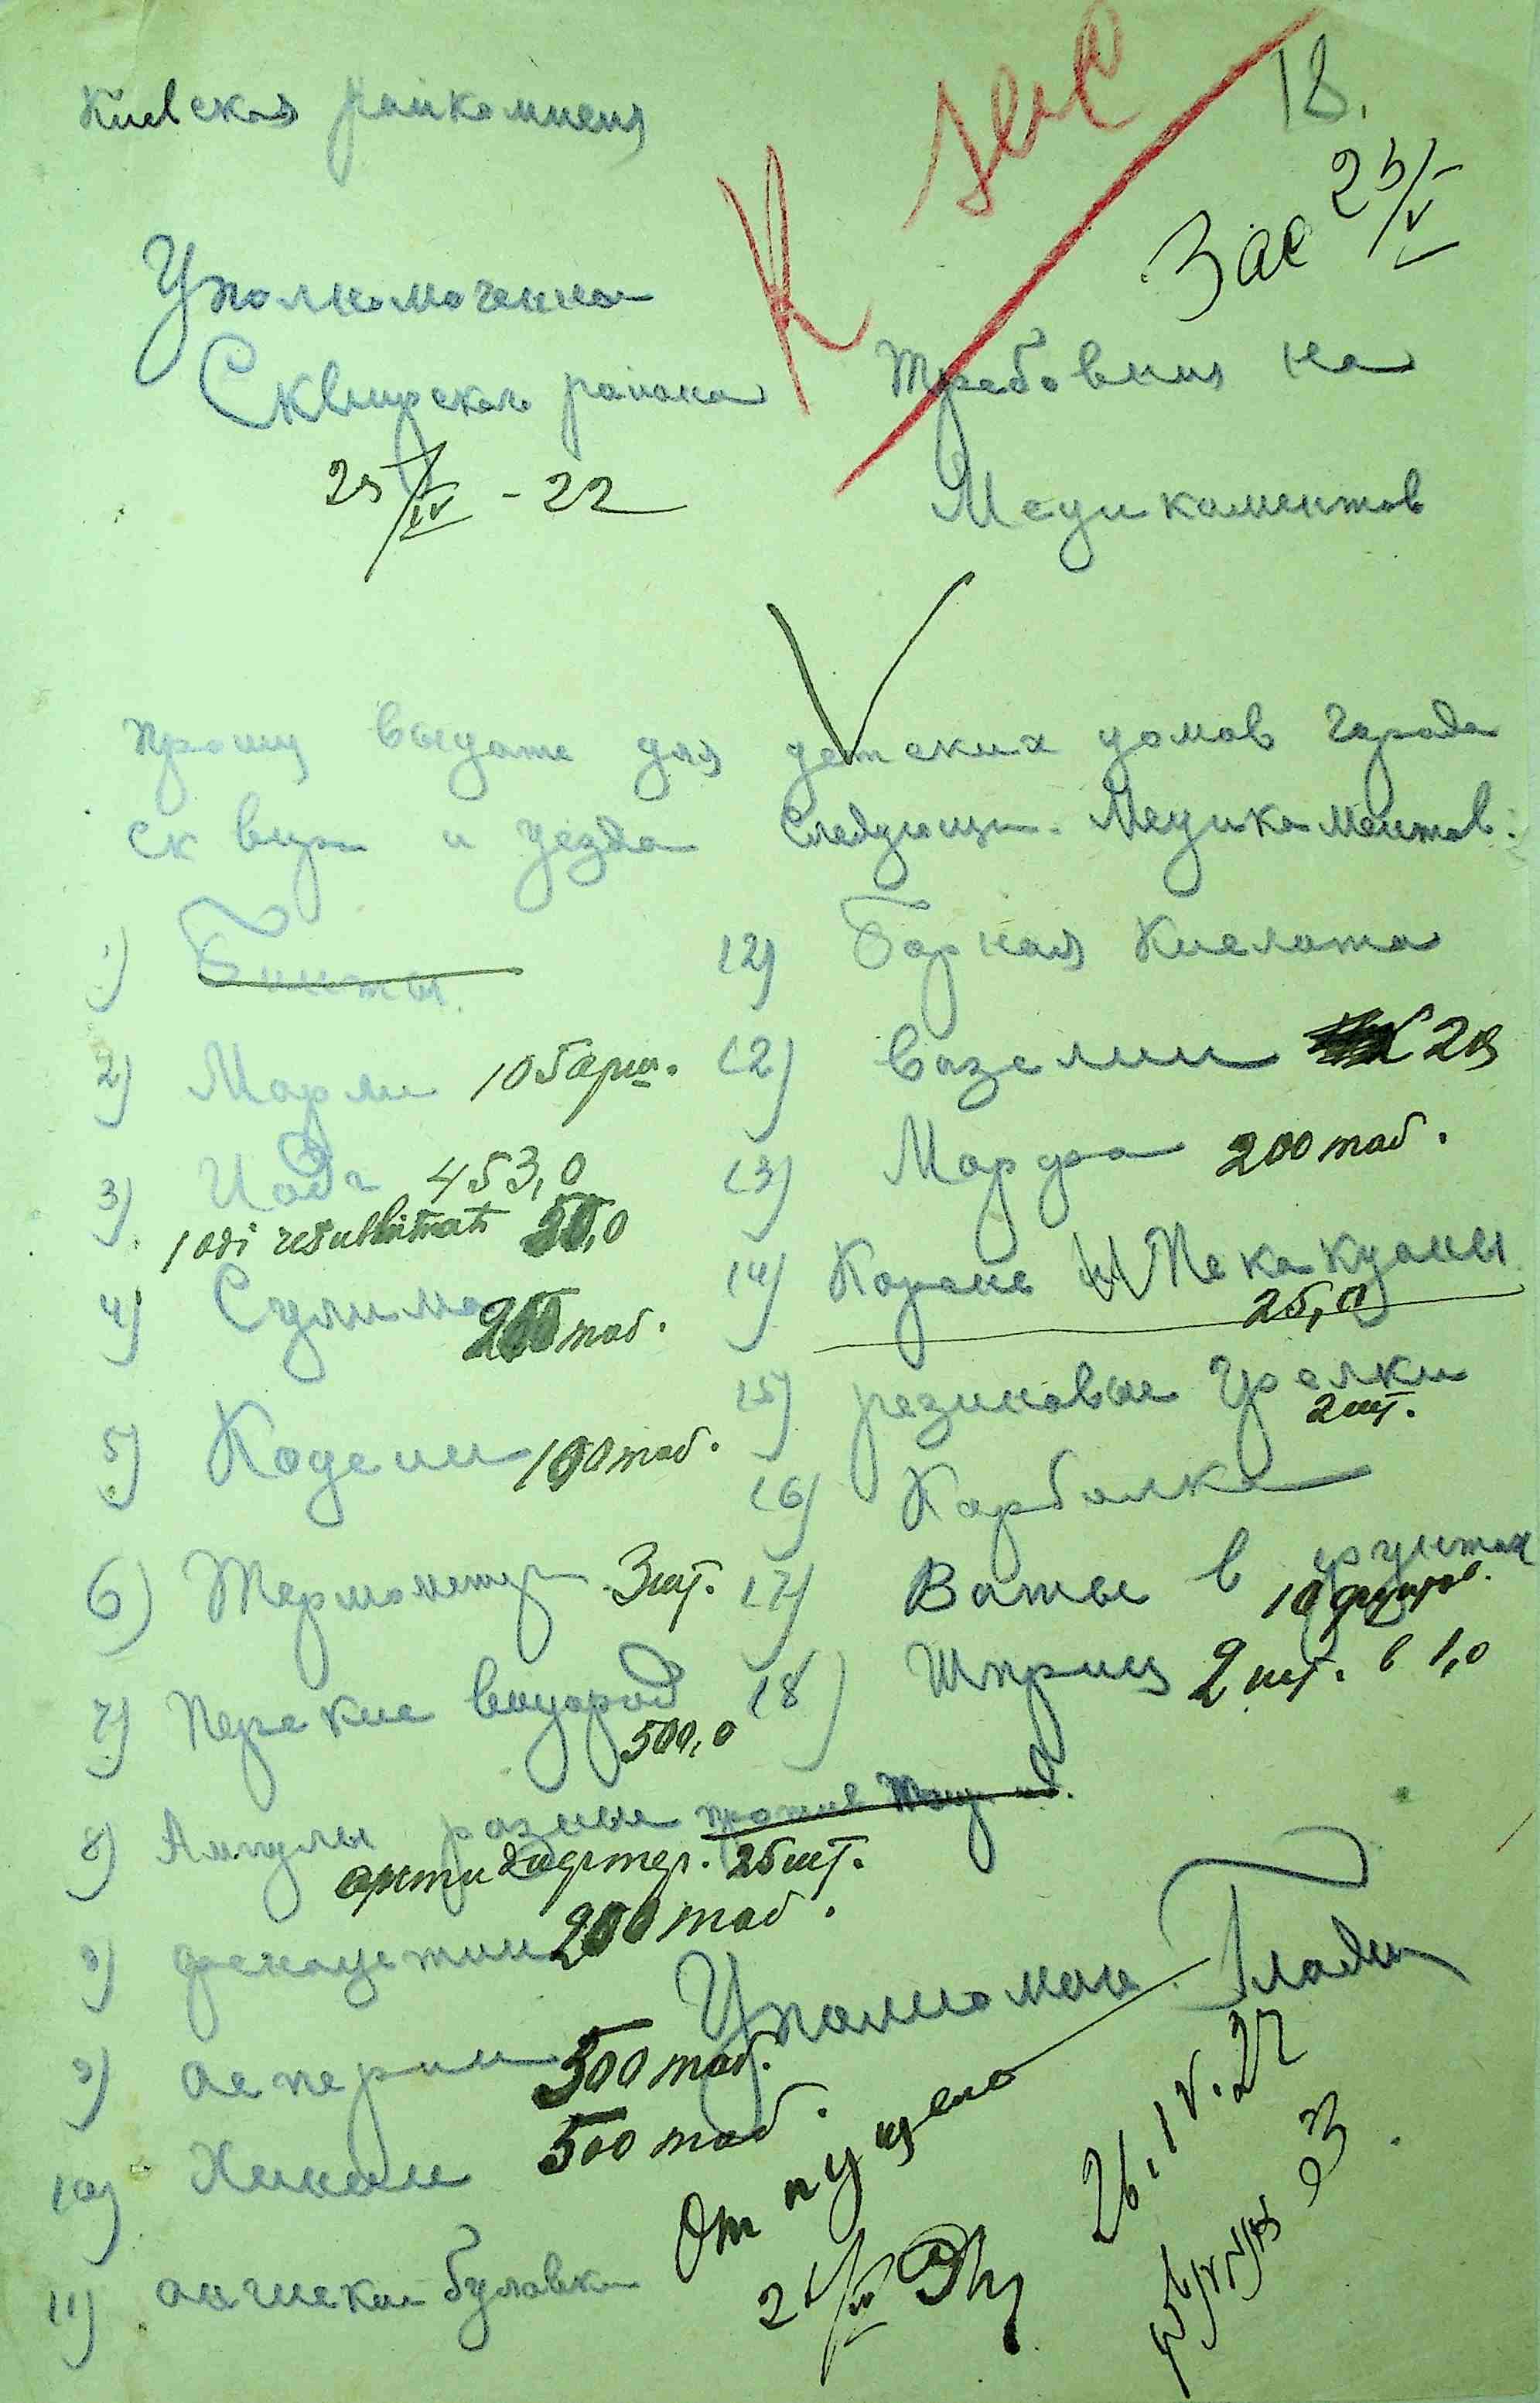 Киевская Райкомисия
18.
К
Зас 25/V
Уполномоченная
Сквирскаго района
25/IV - 22
Требования на
Медикаментов
Прошу выдать для детских домов города
Сквира и уезда следующи. Медикаментов:
1) Бинты
2) Марли 105 арш.
3) Иода 453,0
Iodi resublimati 50,0
4) Сулима 200 таб.
5) Кодеин 100 таб.
6) Термометр 3 шт.
7) Перекис водород
500,0
8) Ампулы разные против
25 шт.
9) фенацетин 200 таб.
9) аспирин 500 таб.
10) Хинин 500 таб.
11) англиские булавки
12) Борная Кислота
12) Вазелин
13) Морфия 200 таб.
14) Корень Ипекакуаны
25,0
15) резиновые Грелки
2 шт.
16) Карболка
17) Ваты в фунтах
10 фунтов.
18) Шприц 2 шт. в 1,0
Уполномоч.
Отпущено
26.IV.22